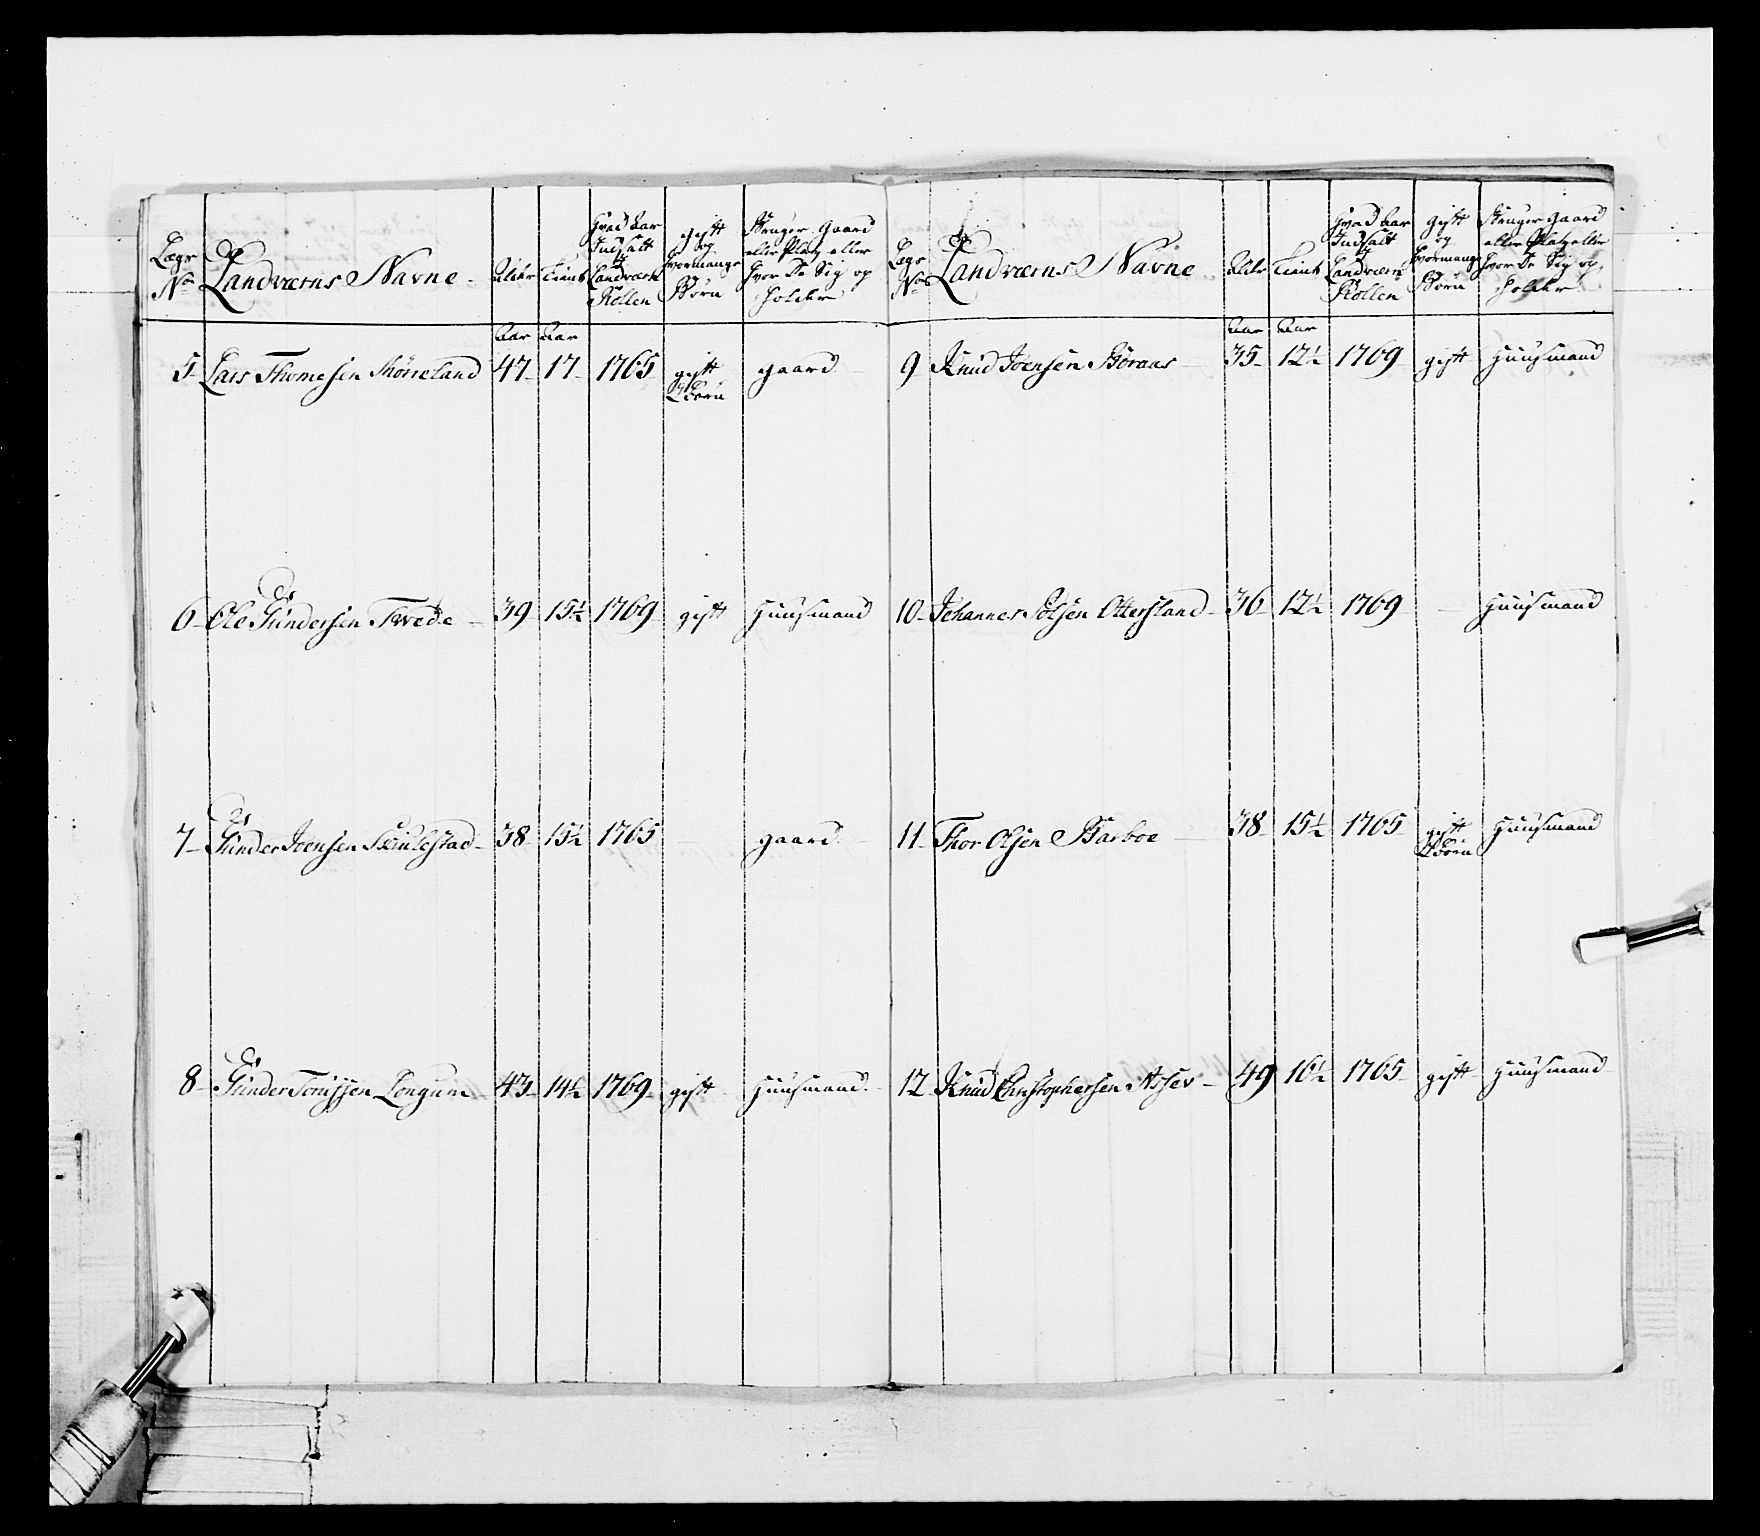 Lægs No
Landværns Navne
Alder
Tient
Hvad Aar Indsatt i Landværn Rollen
gift og hvormange Børn
Bruger Gaard eller Platz eller hvor De Sig op holder
Aar Aar
5 Lars Thomesen 47 17 1765 gift Børn gaard
6 Ole Gundersen Twede 39 15½ 1769 gift Huusmand
7 Gunder Joensen 38 15½ 1765 gaard
8 Gunder Tonissen Longum 43 14½ 1769 gift Huusmand
Lægs No
Landværns Navne
Alder
Tient
Hvad Aar Indsatt i Landværn Rollen
gift og hvormange Børn
Bruger gaard eller Platz eller hvor De Sig op holder
Aar Aar
9 Knud Joensen Boraas 35 12½ 1769 gift Huusmand
10 Johannes Olsen Ottersland 36 12½ 1769 Huusmand
11 Thor Olsen Barboe 38 15½ 1765 gift Børn Huusmand
12 Knud Christophersen Assev 49 16½ 1765 gift Huusmand